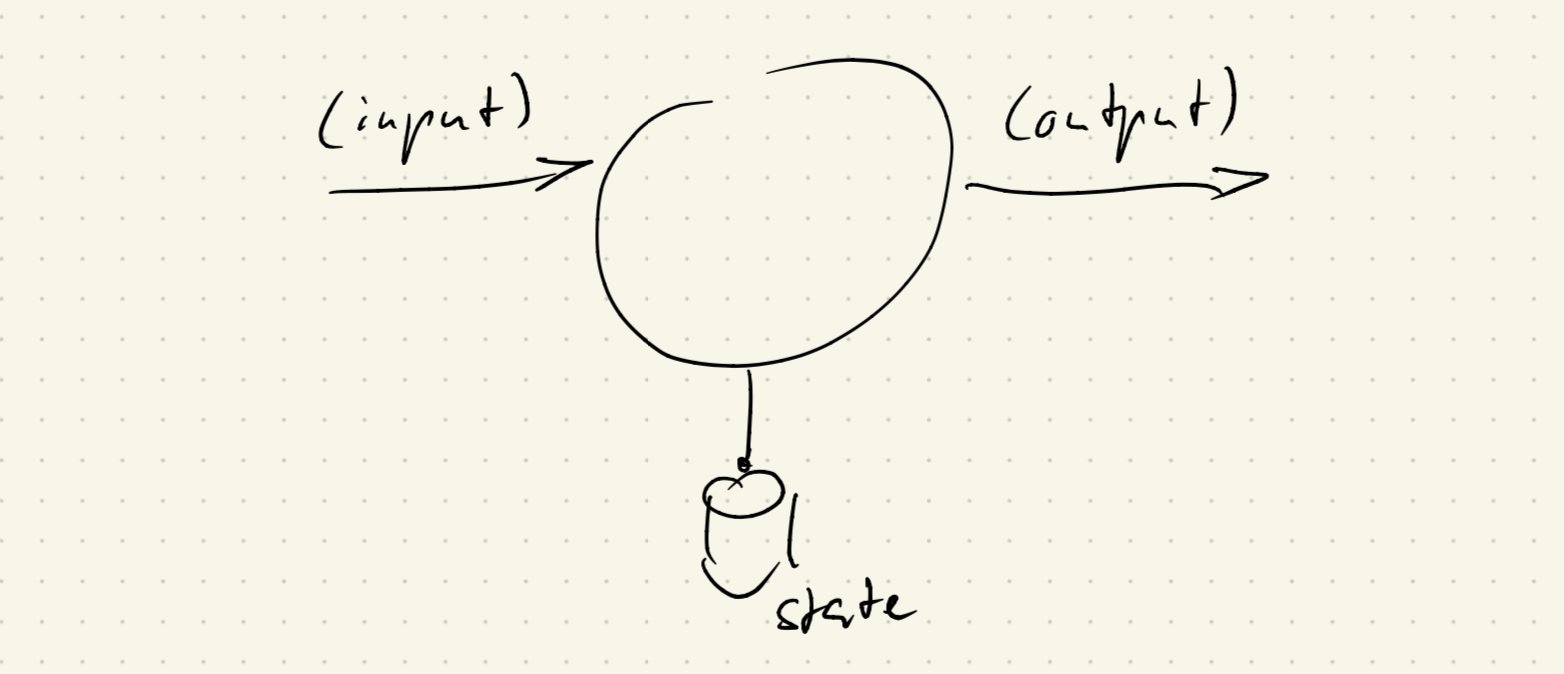 (input)
(output)
state